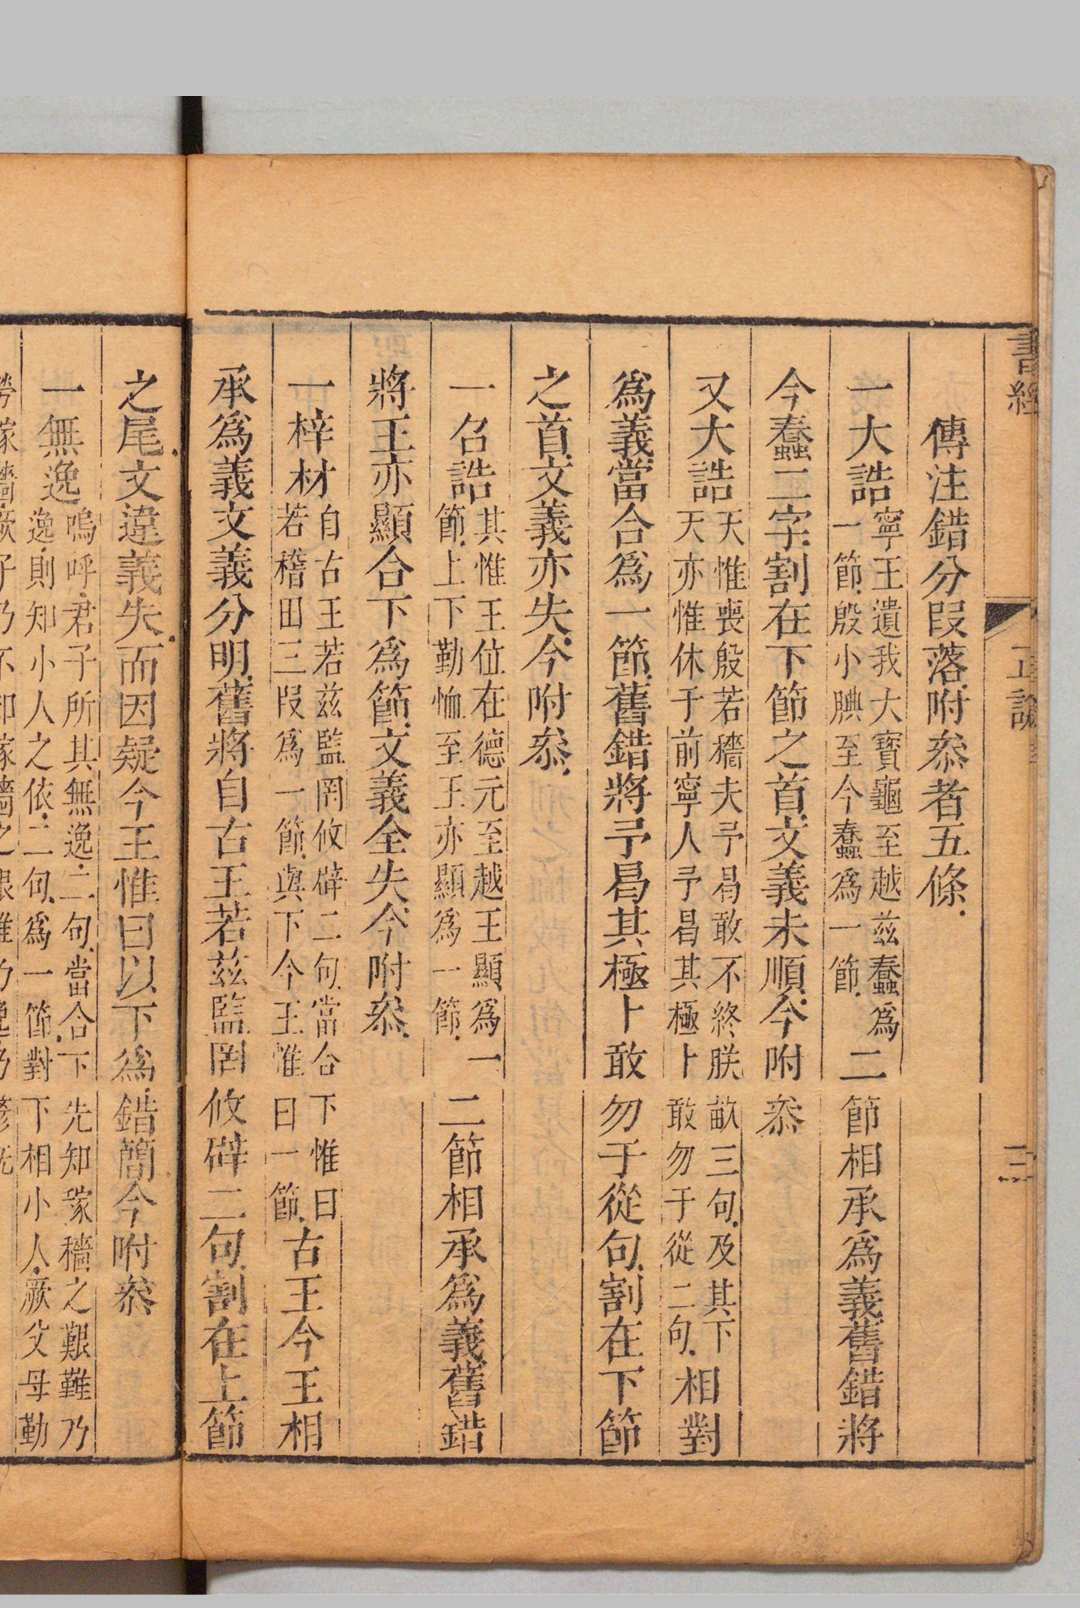 書經
正譌
三
傳注錯分段落附叅者五條
一大誥寧王遺我大寶龜至越茲蠢爲一節殷小腆至今蠢爲一節二節相承爲義舊錯將
今蠢二字割在下節之首文義未順今附叅
又大誥天惟喪殷若穡夫予曷敢不終朕畝三句及其下天亦惟休于前寧人予曷其極卜敢勿于從二句相對
爲義當合爲一節舊錯將予曷其極卜敢勿于從句割在下節
之首文義亦失今附叅
一召誥其惟王位在德元至越王顯爲一節上下勤恤至王亦顯爲一節二節相承爲義舊錯
將王亦顯合下爲節文義全失今附叅
一梓材自古王若茲監罔攸辟二句當合下惟曰若稽田三段爲一節與下今王惟曰一節古王今王相
承爲義文義分明舊將自古王若茲監罔攸辟二句割在上節
之尾文違義失而因疑今王惟曰以下爲錯簡今附叅
一無逸嗚呼君子所其無逸二句當合下先知稼穡之艱難乃逸則知小人之依二句爲一節對下相小人厥父母勤